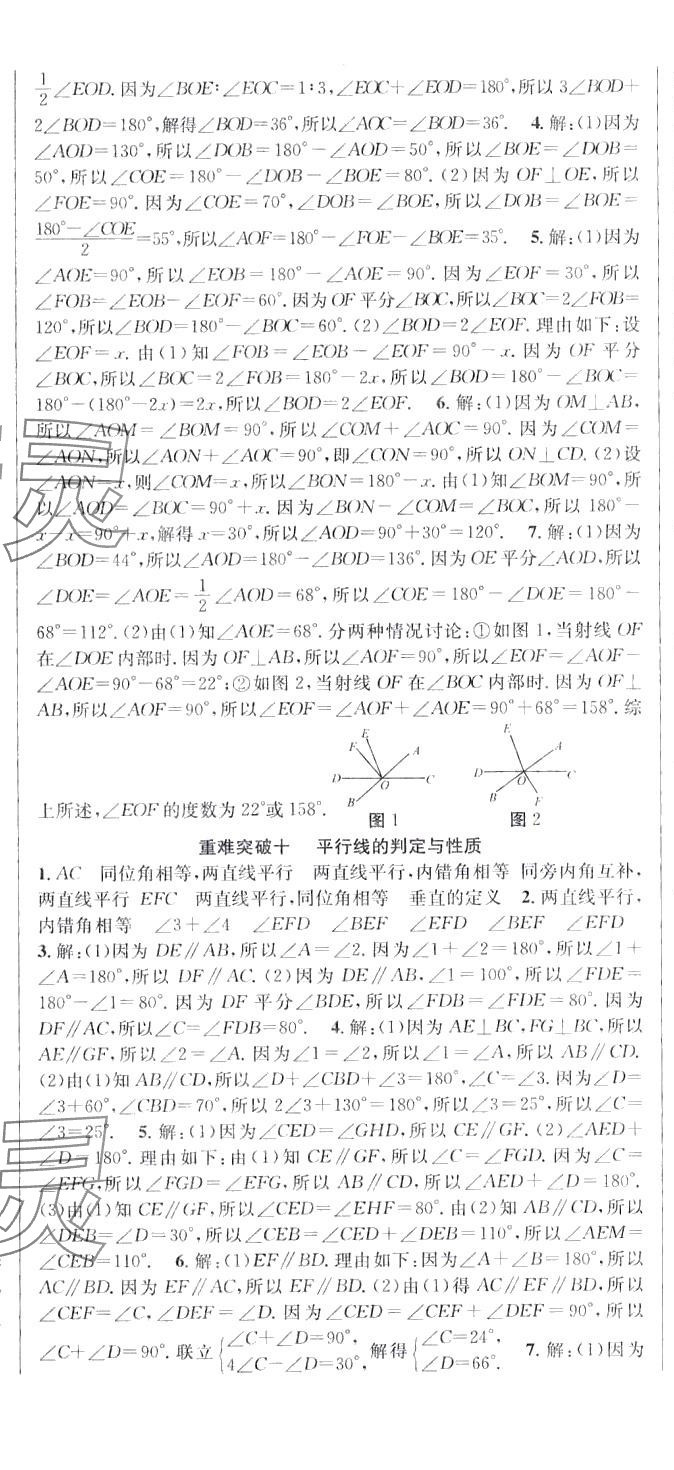 1/2∠EOD.因为∠BOE∶∠EOC=1∶3,∠EOC+∠EOD=180°,所以3∠BOD+
2∠BOD=180°,解得∠BOD=36°,所以∠AOC=∠BOD=36°. 4.解:(1)因为
∠AOD=130°,所以∠DOB=180°-∠AOD=50°,所以∠BOE=∠DOB=
50°,所以∠COE=180°-∠DOB-∠BOE=80°.(2)因为OF⊥OE,所以
∠FOE=90°.因为∠COE=70°,∠DOB=∠BOE,所以∠DOB=∠BOE=
(180°-∠COE)/2=55°,所以∠AOF=180°-∠FOE-∠BOE=35°. 5.解:(1)因为
∠AOE=90°,所以∠EOB=180°-∠AOE=90°.因为∠EOF=30°,所以
∠FOB=∠EOB-∠EOF=60°.因为OF平分∠BOC,所以∠BOC=2∠FOB=
120°,所以∠BOD=180°-∠BOC=60°.(2)∠BOD=2∠EOF.理由如下:设
∠EOF=x.由(1)知∠FOB=∠EOB-∠EOF=90°-x.因为OF平分
∠BOC,所以∠BOC=2∠FOB=180°-2x,所以∠BOD=180°-∠BOC=
180°-(180°-2x)=2x,所以∠BOD=2∠EOF. 6.解:(1)因为OM⊥AB,
所以∠AOM=∠BOM=90°,所以∠COM+∠AOC=90°.因为∠COM=
∠AON,所以∠AON+∠AOC=90°,即∠CON=90°,所以ON⊥CD.(2)设
∠AON=x,则∠COM=x,所以∠BON=180°-x.由(1)知∠BOM=90°,所
以∠AOD=∠BOC=90°+x.因为∠BON-∠COM=∠BOC,所以180°-
x-x=90°+x,解得x=30°,所以∠AOD=90°+30°=120°. 7.解:(1)因为
∠BOD=44°,所以∠AOD=180°-∠BOD=136°.因为OE平分∠AOD,所以
∠DOE=∠AOE=1/2∠AOD=68°,所以∠COE=180°-∠DOE=180°-
68°=112°.(2)由(1)知∠AOE=68°.分两种情况讨论:①如图1,当射线OF
在∠DOE内部时.因为OF⊥AB,所以∠AOF=90°,所以∠EOF=∠AOF-
∠AOE=90°-68°=22°;②如图2,当射线OF在∠BOC内部时.因为OF⊥
AB,所以∠AOF=90°,所以∠EOF=∠AOF+∠AOE=90°+68°=158°.综
E F A D O C B
E A D O C B F
上所述,∠EOF的度数为22°或158°.
图1 图2
重难突破十 平行线的判定与性质
1.AC 同位角相等,两直线平行 两直线平行,内错角相等 同旁内角互补,
两直线平行 EFC 两直线平行,同位角相等 垂直的定义 2.两直线平行,
内错角相等 ∠3+∠4 ∠EFD ∠BEF ∠EFD ∠BEF ∠EFD
3.解:(1)因为DE∥AB,所以∠A=∠2.因为∠1+∠2=180°,所以∠1+
∠A=180°,所以DF∥AC.(2)因为DE∥AB,∠1=100°,所以∠FDE=
180°-∠1=80°.因为DF平分∠BDE,所以∠FDB=∠FDE=80°.因为
DF∥AC,所以∠C=∠FDB=80°. 4.解:(1)因为AE⊥BC,FG⊥BC,所以
AE∥GF,所以∠2=∠A.因为∠1=∠2,所以∠1=∠A,所以AB∥CD.
(2)由(1)知AB∥CD,所以∠D+∠CBD+∠3=180°,∠C=∠3.因为∠D=
∠3+60°,∠CBD=70°,所以2∠3+130°=180°,所以∠3=25°,所以∠C=
∠3=25°. 5.解:(1)因为∠CED=∠GHD,所以CE∥GF.(2)∠AED+
∠D=180°.理由如下:由(1)知CE∥GF,所以∠C=∠FGD.因为∠C=
∠EFG,所以∠FGD=∠EFG,所以AB∥CD,所以∠AED+∠D=180°.
(3)由(1)知CE∥GF,所以∠CED=∠EHF=80°.由(2)知AB∥CD,所以
∠DEB=∠D=30°,所以∠CEB=∠CED+∠DEB=110°,所以∠AEM=
∠CEB=110°. 6.解:(1)EF∥BD.理由如下:因为∠A+∠B=180°,所以
AC∥BD.因为EF∥AC,所以EF∥BD.(2)由(1)得AC∥EF∥BD,所以
∠CEF=∠C,∠DEF=∠D.因为∠CED=∠CEF+∠DEF=90°,所以
∠C+∠D=90°.联立{∠C+∠D=90°, 4∠C-∠D=30°,解得{∠C=24°, ∠D=66°. 7.解:(1)因为
灵
灵